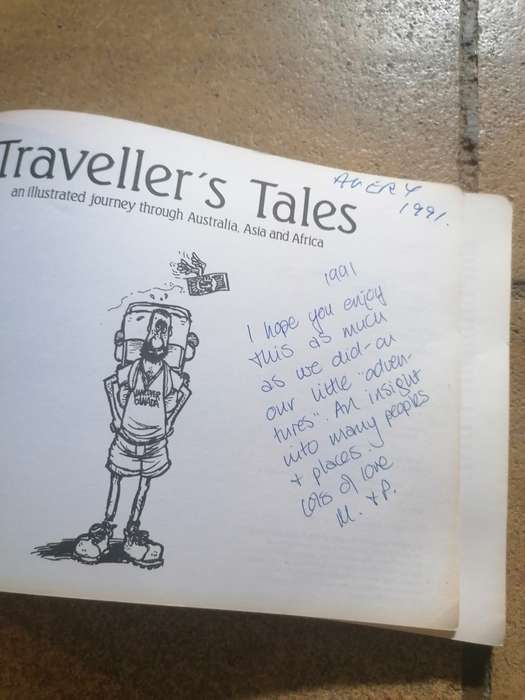 Traveller's Tales
an illustrated journey through Australia, Asia and Africa
AVERY
1991.
1991
I hope you enjoy
this as much
as we did - on
our little "adven-
tures". An insight
into many peoples
& places.
Lots of love
M. & P.
CANADA